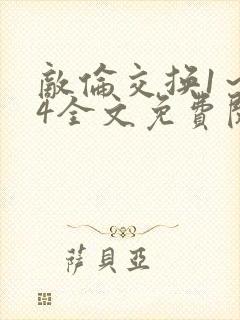 敵倫交換1~
4全文免費閱
薩貝亞